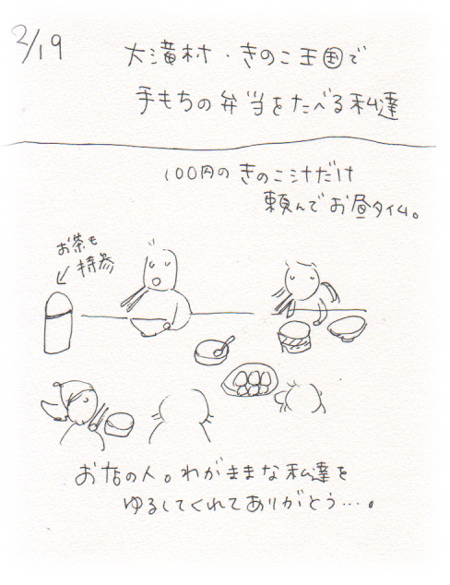 2/19
大滝村・きのこ王国で
手もちの弁当をたべる私達
100円のきのこ汁だけ
頼んでお昼タイム。
お茶も
持参
お店の人。わがままな私達を
ゆるしてくれてありがとう…。